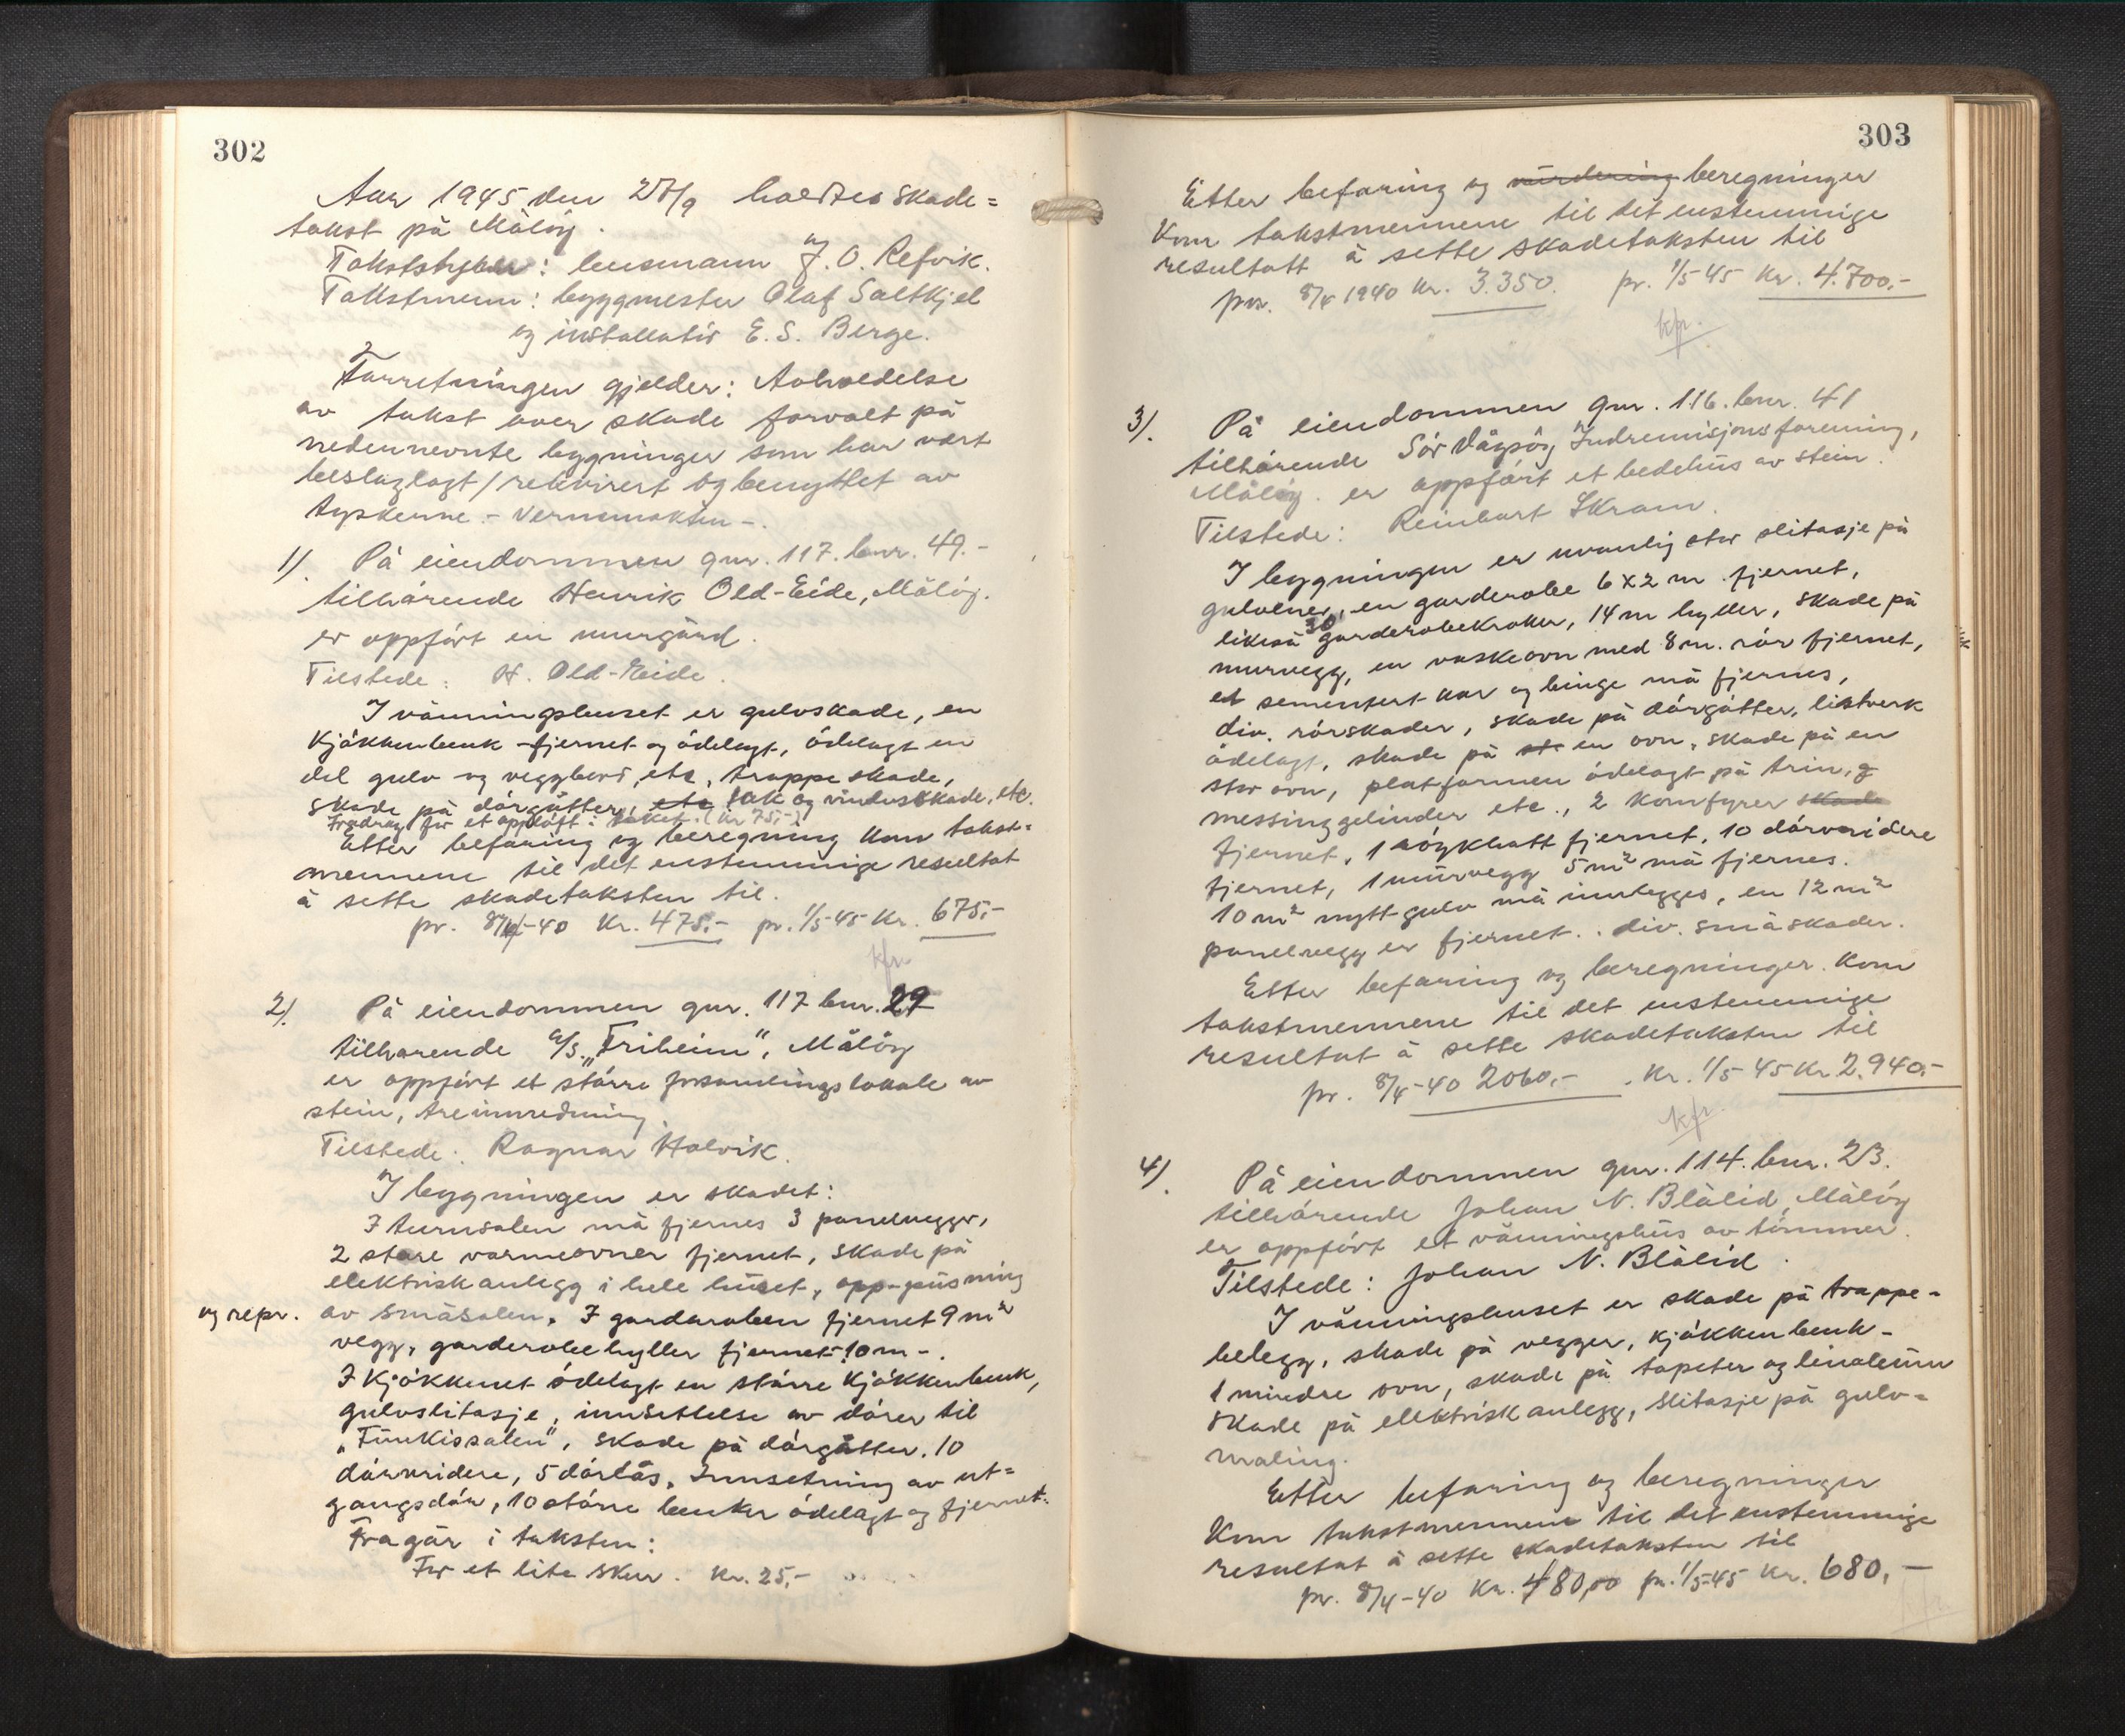 302
Aar 1945 den 27/9 holdtes skade=
takst på Måløy.
Takststyrer: lensmann J. O. Refvik.
Takstmenn: byggmester Olaf Saltkjel
og installatør E. S. Berge.
Forretningen gjelder: Avholdelse
av takst over skade forvolt på
nedennevnte bygninger som har vært
beslaglagt/rekvirert og benyttet av
tyskerne - Vernemakten -.
1). På eiendommen gnr. 117. bnr. 49.-
tilhørende Henrik Old-Eide, Måløy.
er oppført en murgård.
Tilstede: H. Old-Eide.
I våningshuset er gulvskade, en
kjøkkenbenk fjernet og ødelagt, ødelagt en
del gulv og veggbord etc, trappeskade,
skade på dørgåtter, etc tak og vindusskade, etc.
Fradrag for et oppløft i taket (kr 75,-)
Etter befaring og beregning kom takst=
mennene til det enstemmige resultat
å sette skadetaksten til.
pr. 8/4-40 Kr. 475.- pr. 1/5-45 Kr. 675,-
kfr.
2). På eiendommen gnr. 117 bnr. 29
tilhørende A/S. „Friheim", Måløy
er oppført et større forsamlingslokale av
stein, treinnredning.
Tilstede: Ragnar Halvik.
I bygningen er skadet:
I turnsalen må fjernes 3 panelvegger,
2 store varmeovner fjernet, skade på
elektrisk anlegg i hele huset, opp-pusning
og repr. av småsalen. I garderoben fjernet 9 m²
vegg, garderobehyller fjernet 10 m -.
I kjøkkenet ødelagt en større kjøkkenbenk,
gulvslitasje, innsettelse av dører til
„Funkissalen", skade på dørgåtter. 10
dørvridere, 5 dørlås, Innsetning av ut=
gangsdør, 10 større benker ødelagt og fjernet.
Fragår i taksten:
For et lite skur. kr. 25,-
303
Etter befaring og vurdering beregninger
kom takstmennene til det enstemmige
resultatt å sette skadetaksten til
pr. 8/4 1940 kr. 3.350. pr. 1/5 45 Kr. 4.700,-
kfr.
3). På eiendommen gnr. 116. bnr. 41
tilhørende Sør Vågsøy Indremisjonsforening,
Måløy. er oppført et bedehus av stein.
Tilstede: Reinhart Skram.
I bygningen er uvanlig stor slitasje på
gulvene, en garderobe 6 x 2 m fjernet,
likeså 30 garderobekroker, 14 m hyller, skade på
murvegg, en vaskeovn med 8 m. rør fjernet,
et sementert kar og binge må fjernes,
div. rørskader, skade på dørgåtter, listverk
ødelagt, skade på en ovn, skade på en
stor ovn, platformen ødelagt på trin, og
messinggelinder etc., 2 komfyrer skade
fjernet, 1 røykhatt fjernet, 10 dørvridere
fjernet, 1 murvegg 5 m² må fjernes.
10 m² nytt gulv må innlegges, en 12 m²
panelvegg er fjernet. . div. småskader.
Etter befaring og beregninger. kom
takstmennene til det enstemmige
resultat å sette skadetaksten til
pr. 8/4-40 2060,- . Kr. 1/5 45 Kr. 2.940,-
kfr.
4). På eiendommen gnr. 114. bnr. 23.
tilhørende Johan N. Blålid, Måløy
er oppført et våningshus av tømmer.
Tilstede: Johan N. Blålid.
I våningshuset er skade på trappe-
belegg, skade på vegger, kjøkkenbenk-
1 mindre ovn, skade på tapeter og linoleum
skade på elektrisk anlegg, slitasje på gulv=
maling.
Etter befaring og beregninger
kom takstmennene til det enstemmige
resultat å sette skadetaksten til
pr. 8/4-40 Kr. 480,00 pr. 1/5-45 Kr. 680,-